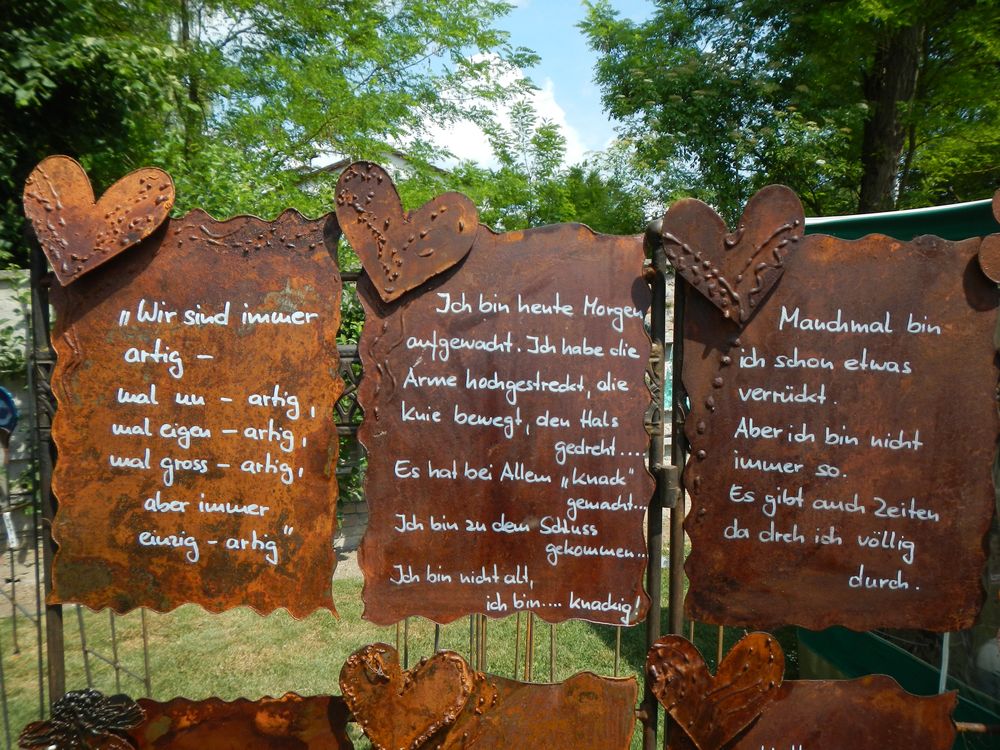 „Wir sind immer
artig –
mal un – artig,
mal eigen – artig,
mal gross – artig,
aber immer
einzig – artig"
Ich bin heute Morgen
aufgewacht. Ich habe die
Arme hochgestreckt, die
Knie bewegt, den Hals
gedreht....
Es hat bei Allem „Knack"
gemacht...
Ich bin zu dem Schluss
gekommen..
Ich bin nicht alt,
ich bin.... knackig!
Manchmal bin
ich schon etwas
verrückt.
Aber ich bin nicht
immer so.
Es gibt auch Zeiten
da dreh ich völlig
durch.